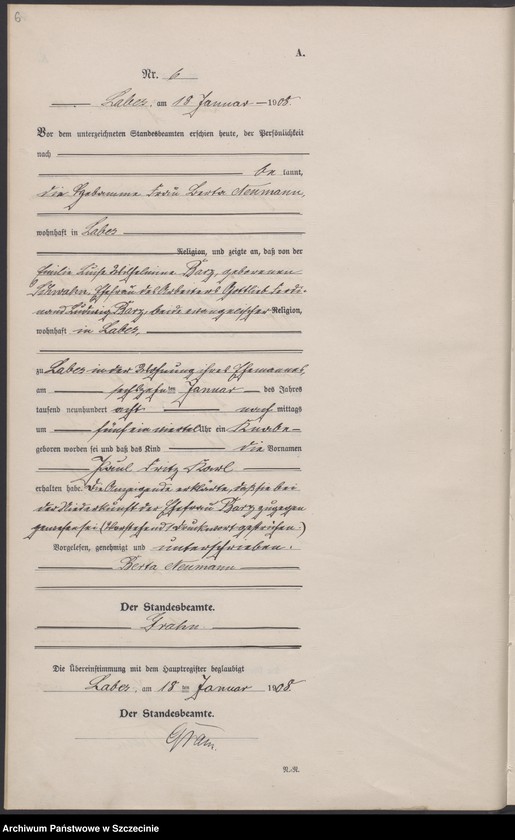 6
A.
Nr. 6
Labes, am 18 Januar 1908
Vor dem unterzeichneten Standesbeamten erschien heute, der Persönlichkeit
nach
be kannt,
die Hebamme Frau Berta Neumann,
wohnhaft in Labes
Religion, und zeigte an, daß von der
Emilie Luise Wilhelmine Barz, geborenen
Schwahn, Ehefrau des Arbeiters Gottlieb Ferdi-
nand Ludwig Barz, beide evangelischer Religion,
wohnhaft in Labes,
zu Labes in der Wohnung ihres Ehemannes,
am sechszehn ten Januar des Jahres
tausend neunhundert acht nach mittags
um fünf ein viertel Uhr ein Knabe
geboren worden sei und daß das Kind die Vornamen
Paul Fritz Karl
erhalten habe. Die Anzeigende erklärte, daß sie bei
der Niederkunft der Ehefrau Barz zugegen
gewesen sei. (Vorstehend 1 Druckwort gestrichen.)
Vorgelesen, genehmigt und unterschrieben.
Berta Neumann
Der Standesbeamte.
Frahn
Die Übereinstimmung mit dem Hauptregister beglaubigt
Labes, am 18 ten Januar 1908.
Der Standesbeamte.
N.-R.
Archiwum Państwowe w Szczecinie